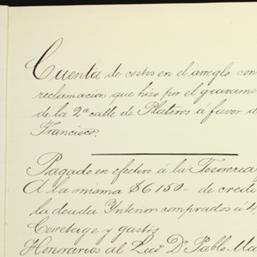 Cuenta de costos en el arreglo con
reclamacion que hizo por el gravame
de la 2ª calle de Plateros á favor d
Francisco.
Pagado en efectivo á la Tesoreria
A la misma $6150- de credi
la deuda Ynterior comprados á 4
Corretage y gastos
Honorarios al Lic.º D.n Pablo Ma